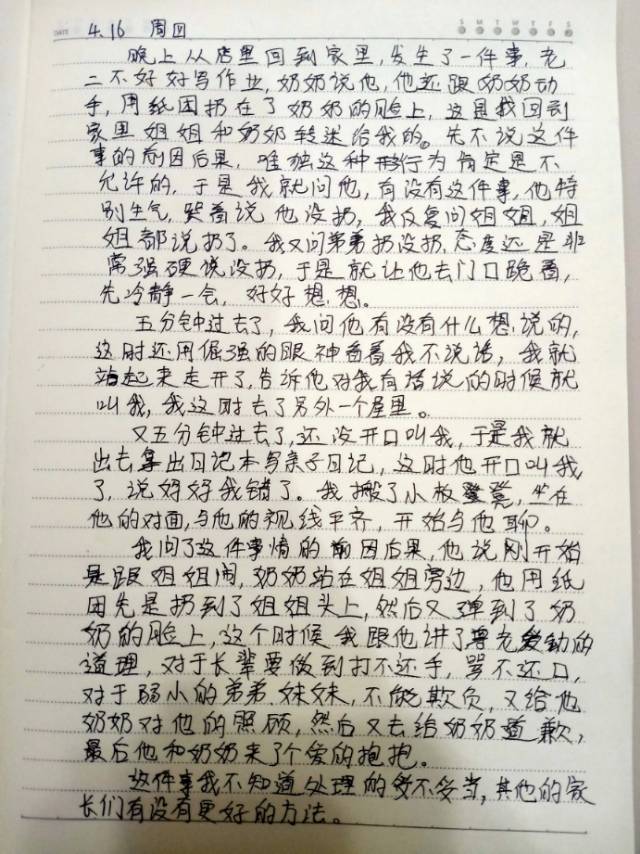 DATE 4.16 周四 S M T W T F S
晚上从店里回到家里,发生了一件事,老
二不好好写作业,奶奶说他,他还跟奶奶动
手,用纸团扔在了奶奶的脸上,这是我回到
家里姐姐和奶奶转述给我的。先不说这件
事的前因后果,唯独这种行为肯定是不
允许的,于是我就问他,有没有这件事,他特
别生气,哭着说他没扔,我反复问姐姐,姐
姐都说扔了。我又问弟弟扔没扔,态度还是非
常强硬说没扔,于是就让他去门口跪着,
先冷静一会,好好想想。
五分钟过去了,我问他有没有什么想说的,
这时还用倔强的眼神看着我不说话,我就
站起来走开了,告诉他对我有话说的时候就
叫我,我这时去了另外一个屋里。
又五分钟过去了,还没开口叫我,于是我就
出去拿出日记本写亲子日记,这时他开口叫我
了,说妈妈我错了。我搬了小板凳,坐在
他的对面,与他的视线平齐,开始与他聊。
我问了这件事情的前因后果,他说刚开始
是跟姐姐闹,奶奶站在姐姐旁边,他用纸
团先是扔到了姐姐头上,然后又弹到了奶
奶的脸上,这个时候我跟他讲了尊老爱幼的
道理,对于长辈要做到打不还手,骂不还口,
对于弱小的弟弟.妹妹,不能欺负,又给他
奶奶对他的照顾,然后又去给奶奶道歉,
最后他和奶奶来了个爱的抱抱。
这件事我不知道处理的妥不妥当,其他的家
长们有没有更好的方法。